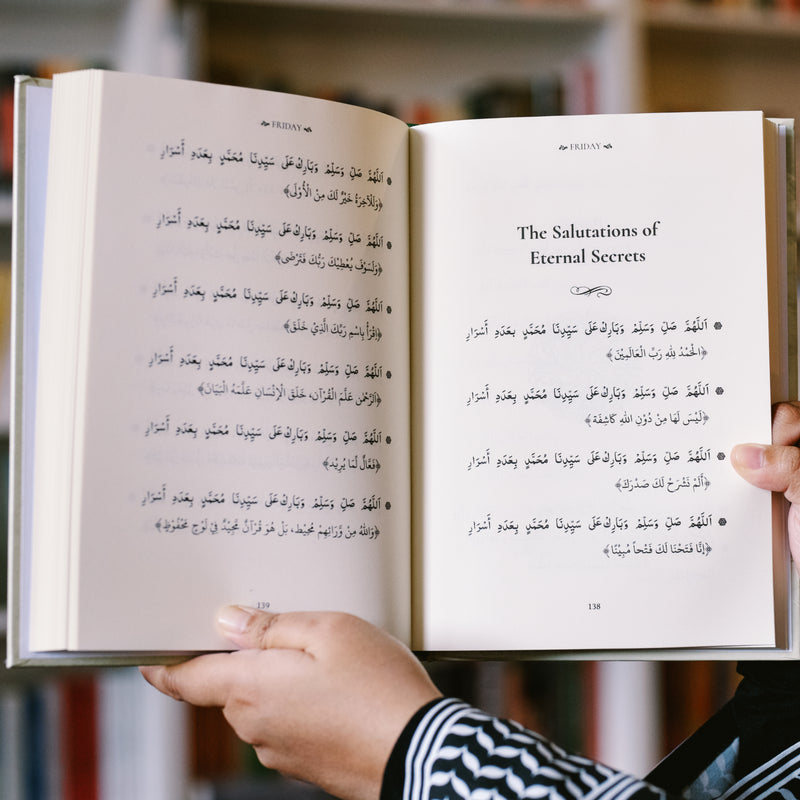 FRIDAY
The Salutations of
Eternal Secrets
اَللّٰهُمَّ صَلِّ وَسَلِّمْ وَبَارِكْ عَلَى سَيِّدِنَا مُحَمَّدٍ بعَدَدِ أَسْرَارِ
﴿الْحَمْدُ لِلّٰهِ رَبِّ الْعَالَمِيْنَ﴾
اَللّٰهُمَّ صَلِّ وَسَلِّمْ وَبَارِكْ عَلَى سَيِّدِنَا مُحَمَّدٍ بِعَدَدِ أَسْرَارِ
﴿لَيْسَ لَهَا مِنْ دُوْنِ اللّٰهِ كَاشِفَة﴾
اَللّٰهُمَّ صَلِّ وَسَلِّمْ وَبَارِكْ عَلَى سَيِّدِنَا مُحَمَّدٍ بِعَدَدِ أَسْرَارِ
﴿أَلَمْ نَشْرَحْ لَكَ صَدْرَكَ﴾
اَللّٰهُمَّ صَلِّ وَسَلِّمْ وَبَارِكْ عَلَى سَيِّدِنَا مُحَمَّدٍ بِعَدَدِ أَسْرَارِ
﴿إِنَّا فَتَحْنَا لَكَ فَتْحاً مُبِيْنًا﴾
138
FRIDAY
اَللّٰهُمَّ صَلِّ وَسَلِّمْ وَبَارِكْ عَلَى سَيِّدِنَا مُحَمَّدٍ بِعَدَدِ أَسْرَارِ
﴿وَلَلْآخِرَةُ خَيْرٌ لَكَ مِنَ الْأُوْلَى﴾
اَللّٰهُمَّ صَلِّ وَسَلِّمْ وَبَارِكْ عَلَى سَيِّدِنَا مُحَمَّدٍ بِعَدَدِ أَسْرَارِ
﴿وَلَسَوْفَ يُعْطِيْكَ رَبُّكَ فَتَرْضَى﴾
اَللّٰهُمَّ صَلِّ وَسَلِّمْ وَبَارِكْ عَلَى سَيِّدِنَا مُحَمَّدٍ بِعَدَدِ أَسْرَارِ
﴿اقْرَأْ بِاسْمِ رَبِّكَ الَّذِيْ خَلَقَ﴾
اَللّٰهُمَّ صَلِّ وَسَلِّمْ وَبَارِكْ عَلَى سَيِّدِنَا مُحَمَّدٍ بِعَدَدِ أَسْرَارِ
﴿اَلرَّحْمٰنُ عَلَّمَ الْقُرْآنَ، خَلَقَ الْإِنْسَانَ عَلَّمَهُ الْبَيَانَ﴾
اَللّٰهُمَّ صَلِّ وَسَلِّمْ وَبَارِكْ عَلَى سَيِّدِنَا مُحَمَّدٍ بِعَدَدِ أَسْرَارِ
﴿فَعَّالٌ لِّمَا يُرِيْدُ﴾
اَللّٰهُمَّ صَلِّ وَسَلِّمْ وَبَارِكْ عَلَى سَيِّدِنَا مُحَمَّدٍ بِعَدَدِ أَسْرَارِ
﴿وَاللّٰهُ مِنْ وَّرَائِهِمْ مُحِيْط، بَلْ هُوَ قُرْآنٌ مَّجِيْدٌ فِيْ لَوْحٍ مَحْفُوْظٍ﴾
139